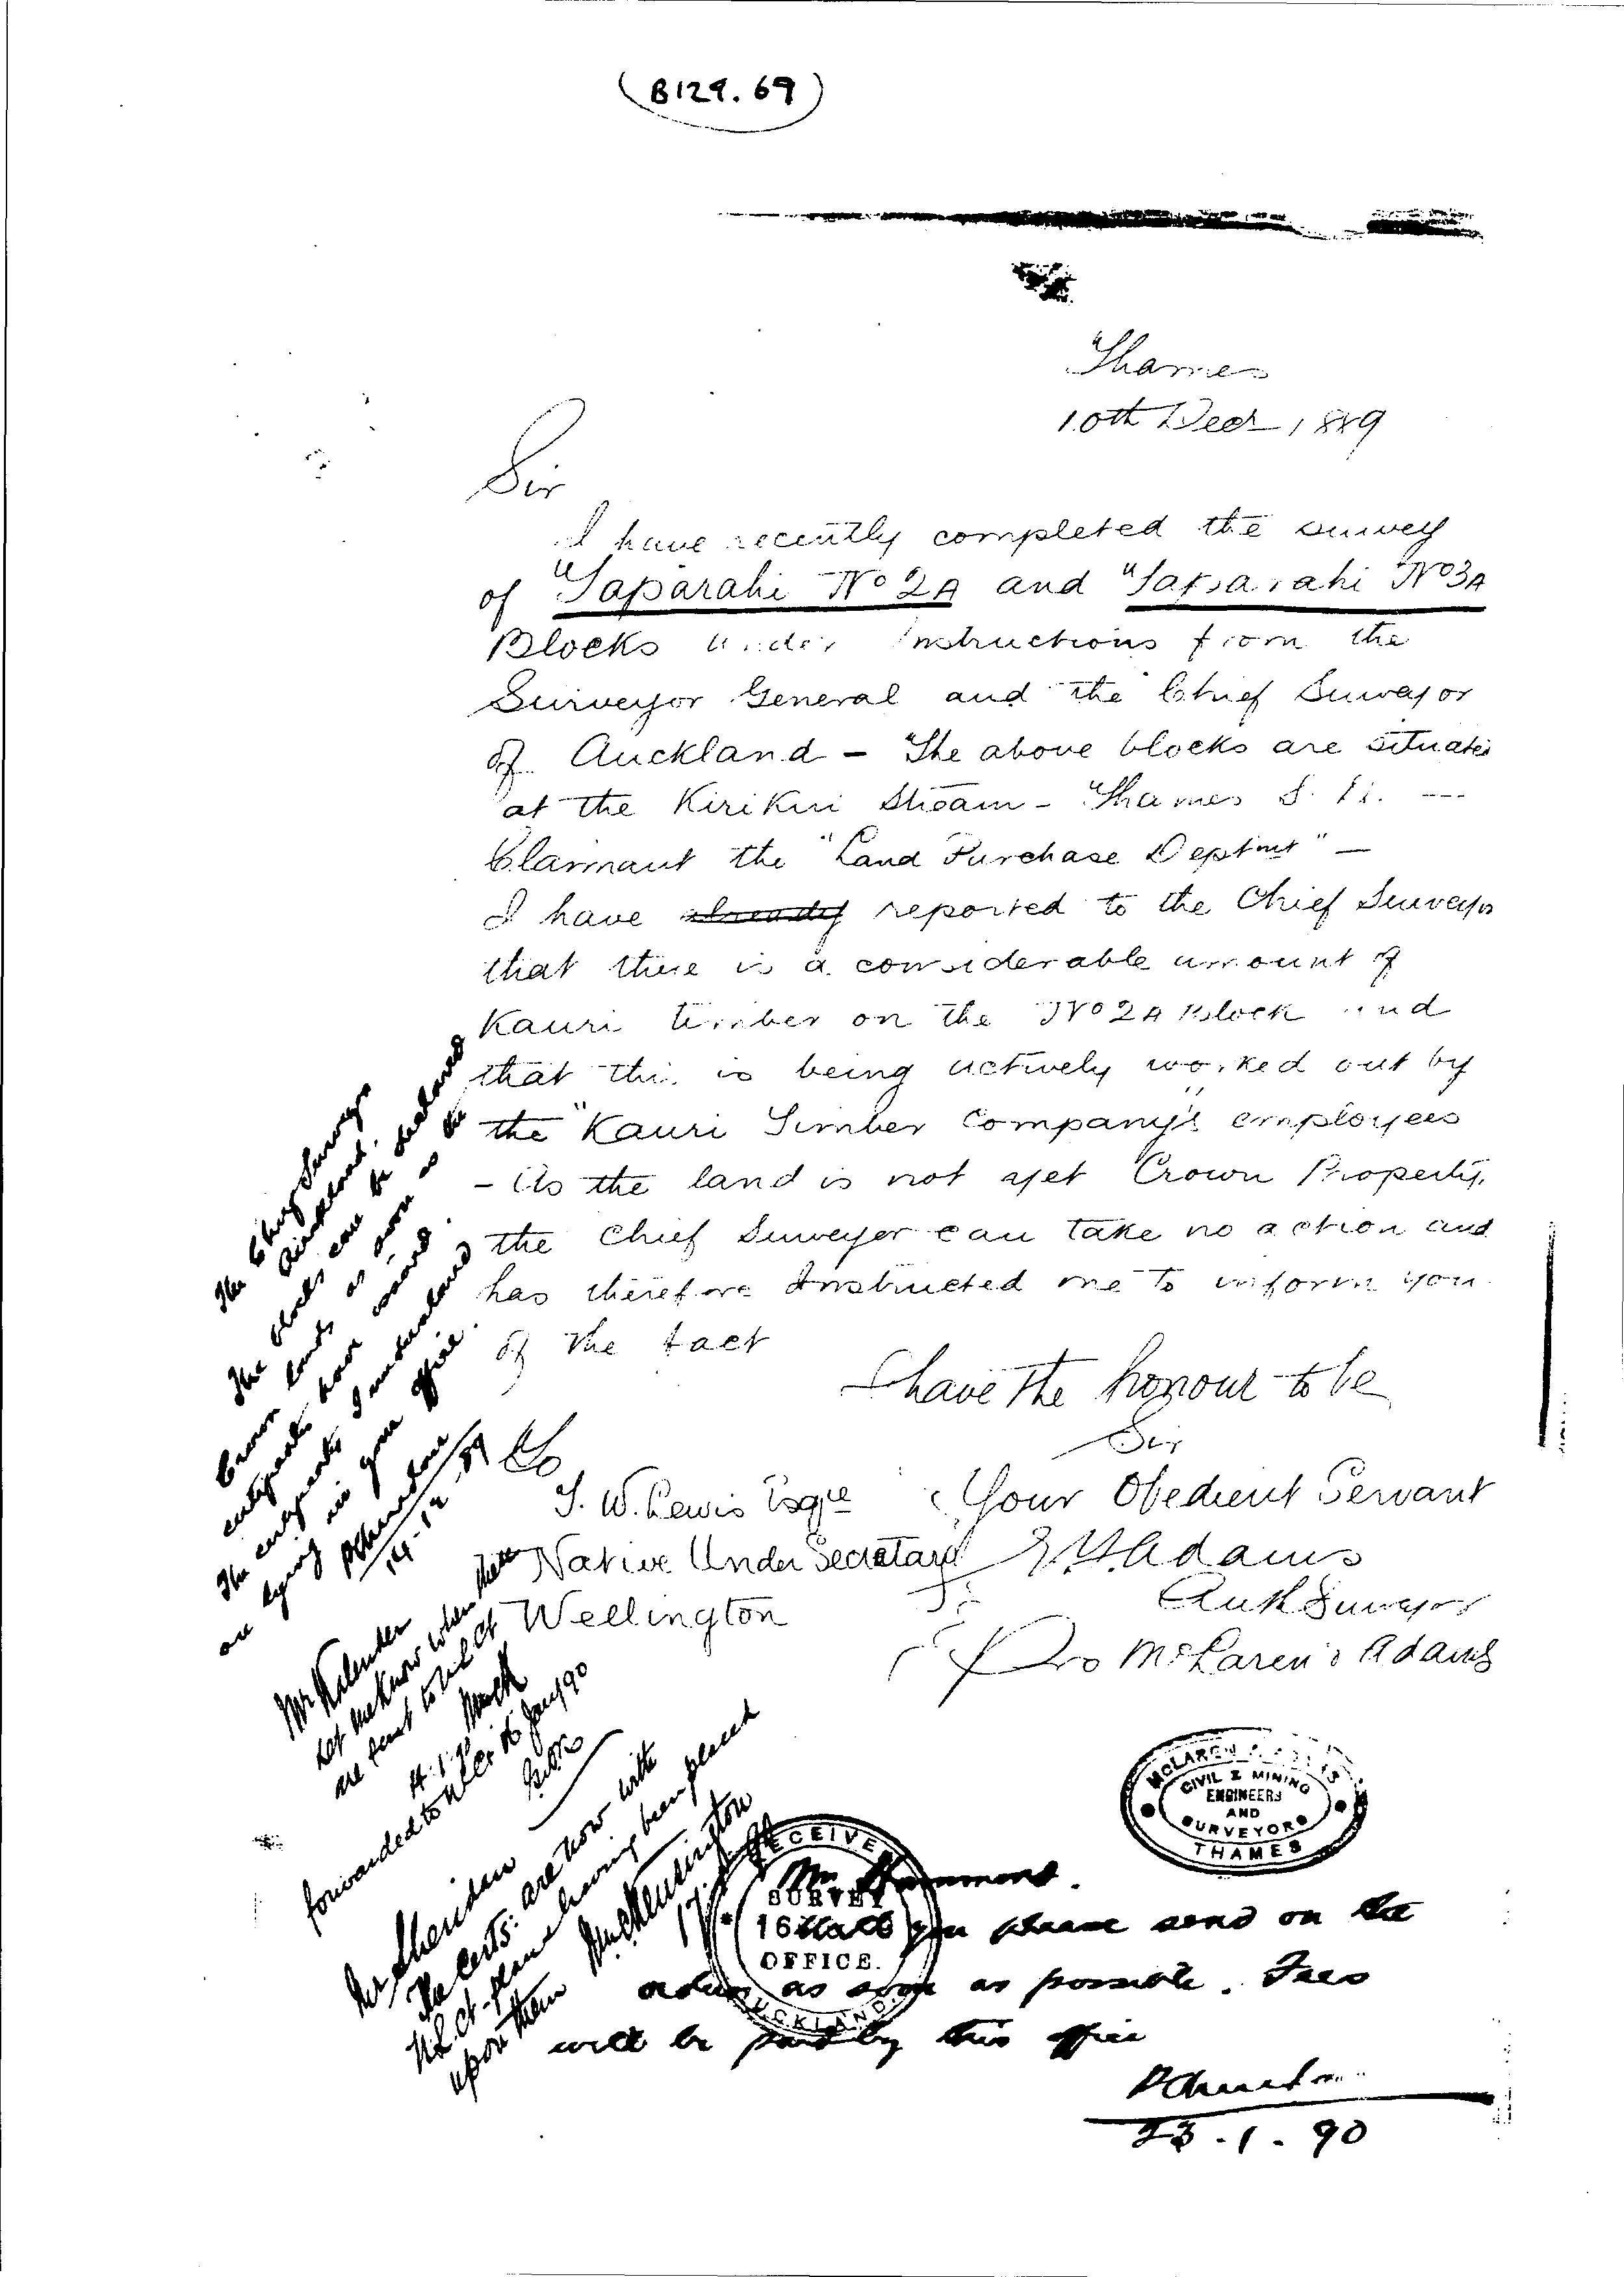 (B129.69)
Thames
10th Decr 1889
Sir
I have recently completed the survey
of Taparahi No 2A and Taparahi No 3A
Blocks under instructions from the
Surveyor General and the Chief Surveyor
of Auckland - The above blocks are situated
at the Kirikiri Stream - Thames S.
Claimant the "Land Purchase Deptmt" -
I have already reported to the Chief Surveyor
that there is a considerable amount of
Kauri timber on the No 2A Block and
that this is being actively worked out by
the "Kauri Timber Company's employees
- As the land is not yet Crown Property,
the Chief Surveyor can take no action and
has therefore Instructed me to inform you
of the fact
I have the honour to be
Sir
Your Obedient Servant
Adams
Auth Surveyor
Pro McLaren & Adams
T. W. Lewis Esqre
Native Under Secretary
Wellington
The Chief Surveyor
Auckland.
The blocks can be declared
Crown lands as soon as the
certificats have issued.
The certificats I understand
are lying in your office.
14-12/89
Mr Kilender
Let me know when these
are sent to N L Ct
forwarded to 16 Jany 90
Mr Sheriden
The Certs: are now with
N.L. Ct. plans having been placed
upon them
RECEIVED
SURVEY
OFFICE.
AUCKLAND
MCLAREN
CIVIL & MINING
ENGINEERS
AND
SURVEYORS
THAMES
you please send on the
as soon as possible. Fees
will be paid by this office
23.1.90